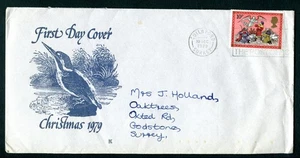 First Day Cover
Christmas 1979
Mrs J. Holland,
Oaktrees,
Oxted Rd,
Godstone,
Surrey.